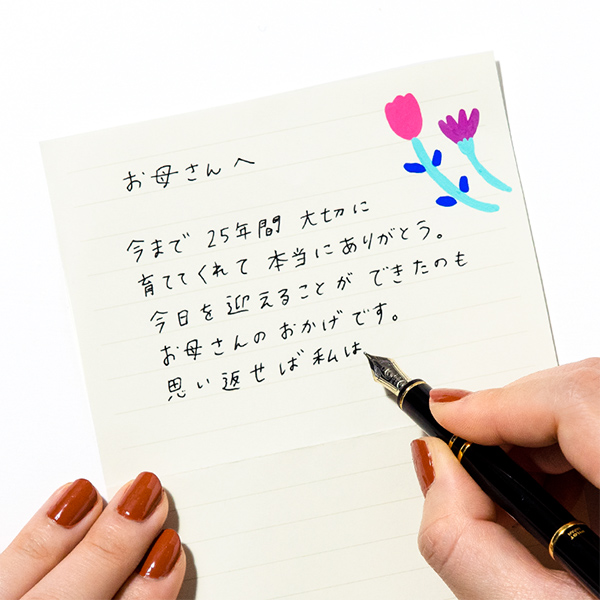 お母さんへ
今まで 25年間 大切に
育ててくれて 本当にありがとう。
今日を迎えることが できたのも
お母さんのおかげです。
思い返せば私は